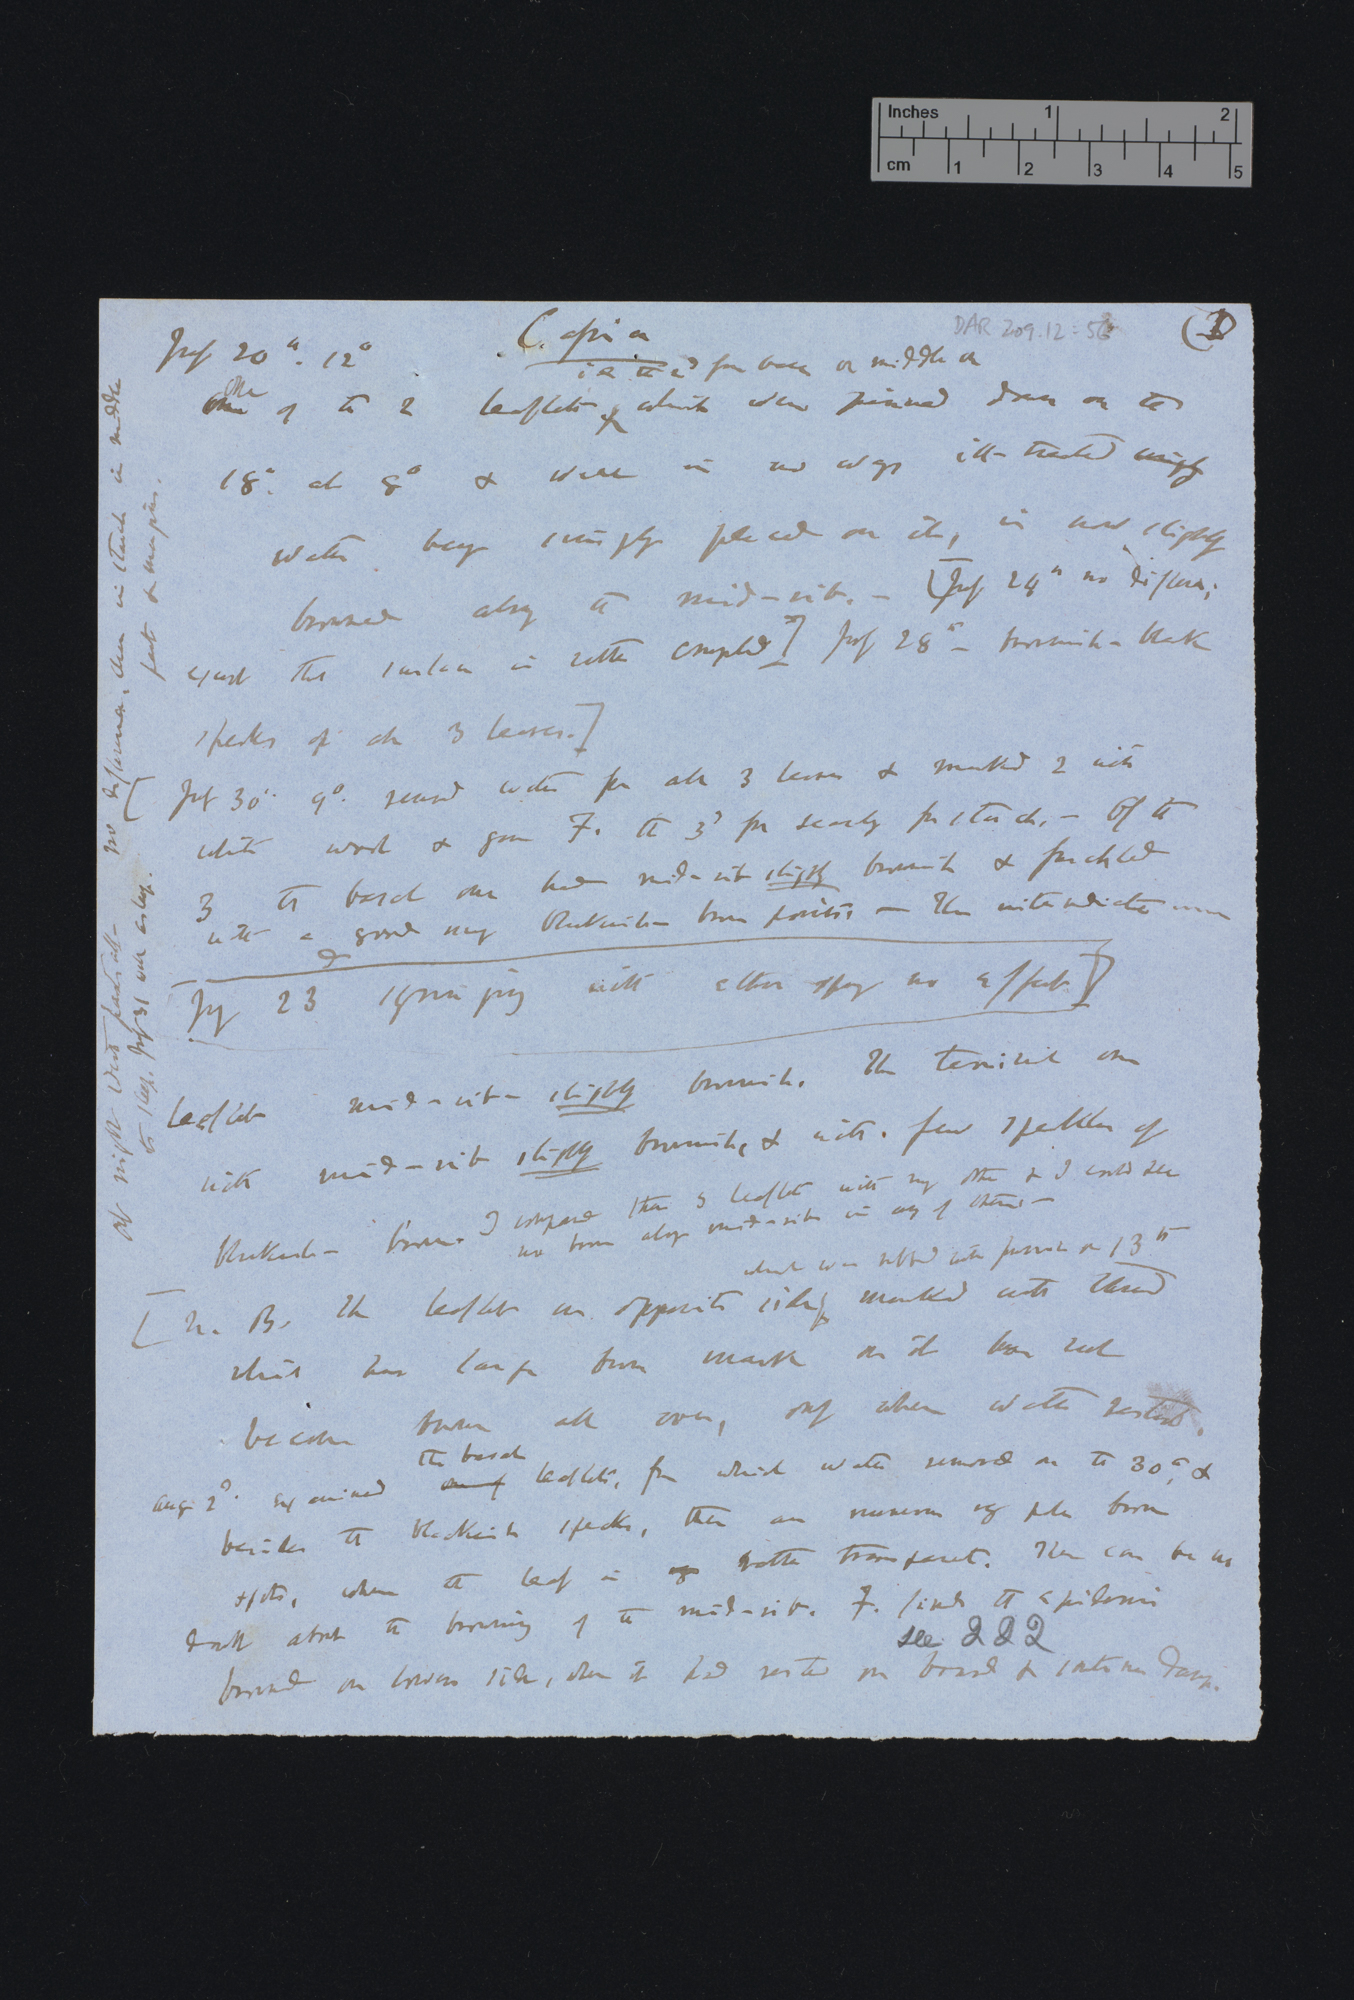 Inches 1 2
cm 1 2 3 4 5
DAR 209.12:56
July 20th. 12°
i.e. the 2d from base or middle one
One of the 2 leaflets, which were pinned down on the
18th. at 8° & were in no ways ill-treated
water being simply placed on it, is now slightly
browned along the mid-rib. — [July 24th no difference;
except the surface is rather crumpled] July 28th — brownish-black
specks of all 3 leaves.]
July 30th. 9° removed water from all 3 leaves & marked 2 with
white wool & gave F. the 3d for section for starch. — Of the
3 the basal one had mid-rib slightly brownish & freckled
with a good many blackish-brown points — The intermediate
July 23 syringing with no effect]
leaflet mid-rib — slightly brownish. The terminal one
with mid-rib slightly brownish, & with few speckles of
blackish-brown. I compared these 3 leaflets with many others & I could see
no brown along mid-rib in any of others —
which was rubbed with on 13th
[N. B. The leaflet on opposite side, marked with thread
which has large brown mark on it has not
become brown all over, only where water rested.
Aug. 2d. examined the basal leaflets, from which water removed on the 30th, &
besides the blackish specks, there are numerous very pale brown
spots, where the leaf is rather transparent. There can be no
doubt about the browning of the mid-rib. F. finds the epidermis
see 222
browned on lower side, where it had rested on board & continued damp.
At night no difference, then in starch in middle
part & margins.
to sleep. July 31 was asleep.